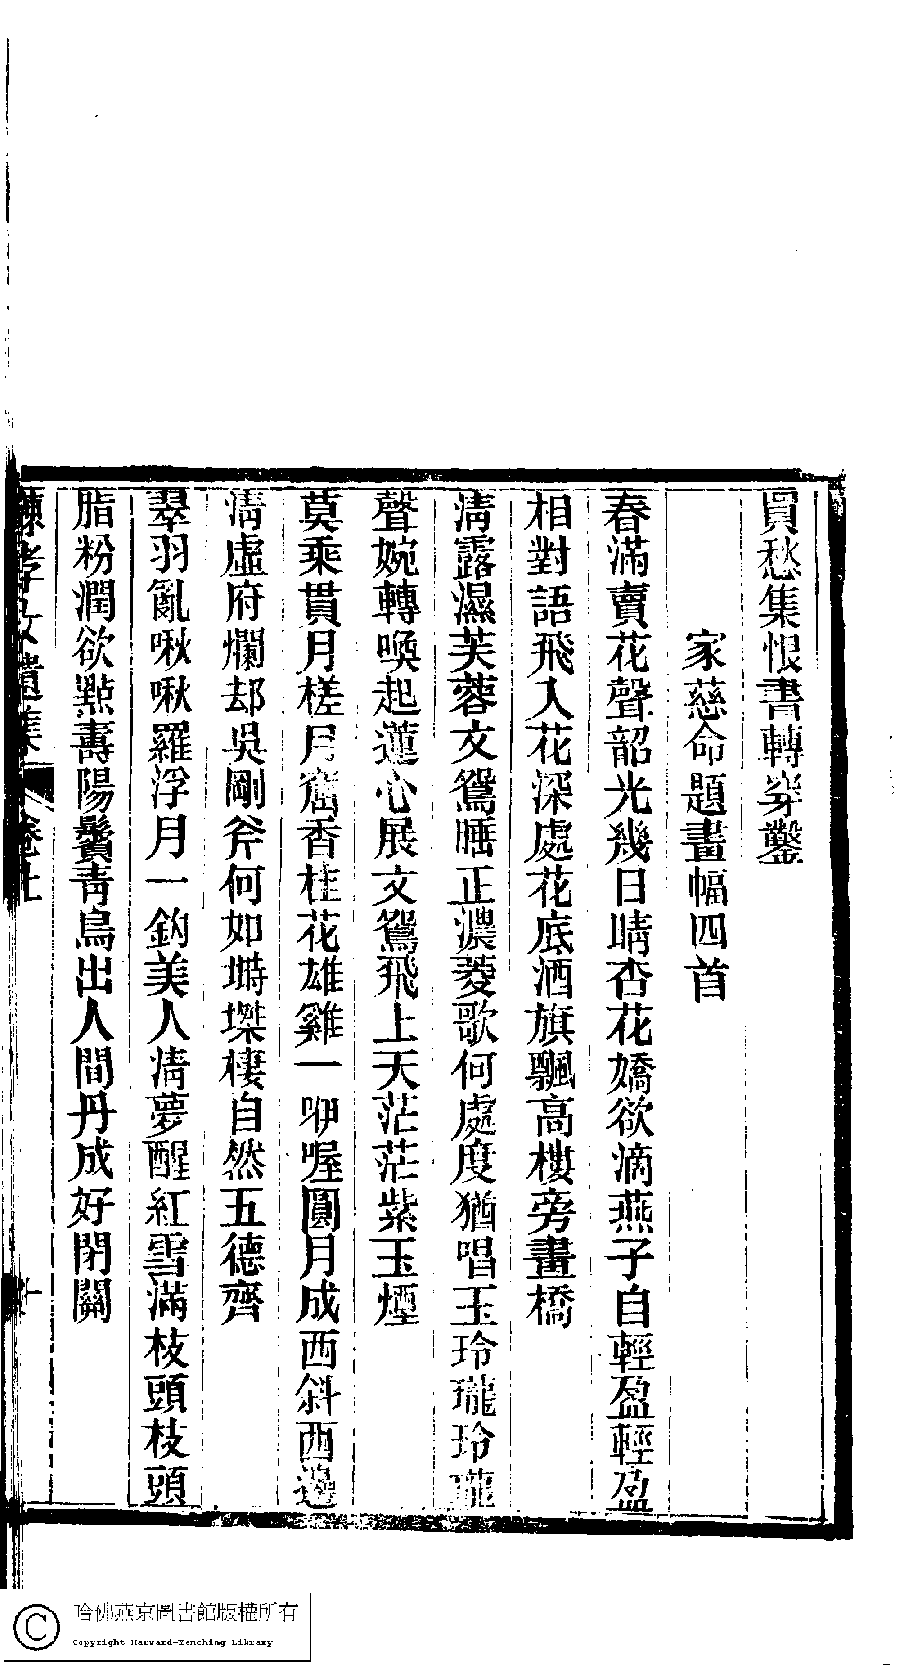 買愁集恨書轉穿鑿
家慈命題畫幅四首
春滿賣花聲韶光幾日晴杏花嬌欲滴燕子自輕盈輕盈
相對語飛入花深處花底酒旗飄高樓旁畫橋
清露濕芙蓉文鴛睡正濃菱歌何處度猶唱玉玲瓏玲瓏
聲婉轉喚起蓮心展文鴛飛上天茫茫紫玉煙
莫乘貫月槎月窟香桂花雄雞一咿喔圓月成西斜西邊
清虛府爛却吳剛斧何如塒墚棲自然五德齊
翠羽亂啾啾羅浮月一鈎美人清夢醒紅雪滿枝頭枝頭
脂粉潤欲點壽陽鬢青鳥出人間丹成好閉關
陳孝女遺集
哈佛燕京圖書館版權所有
Copyright Harvard-Yenching Library